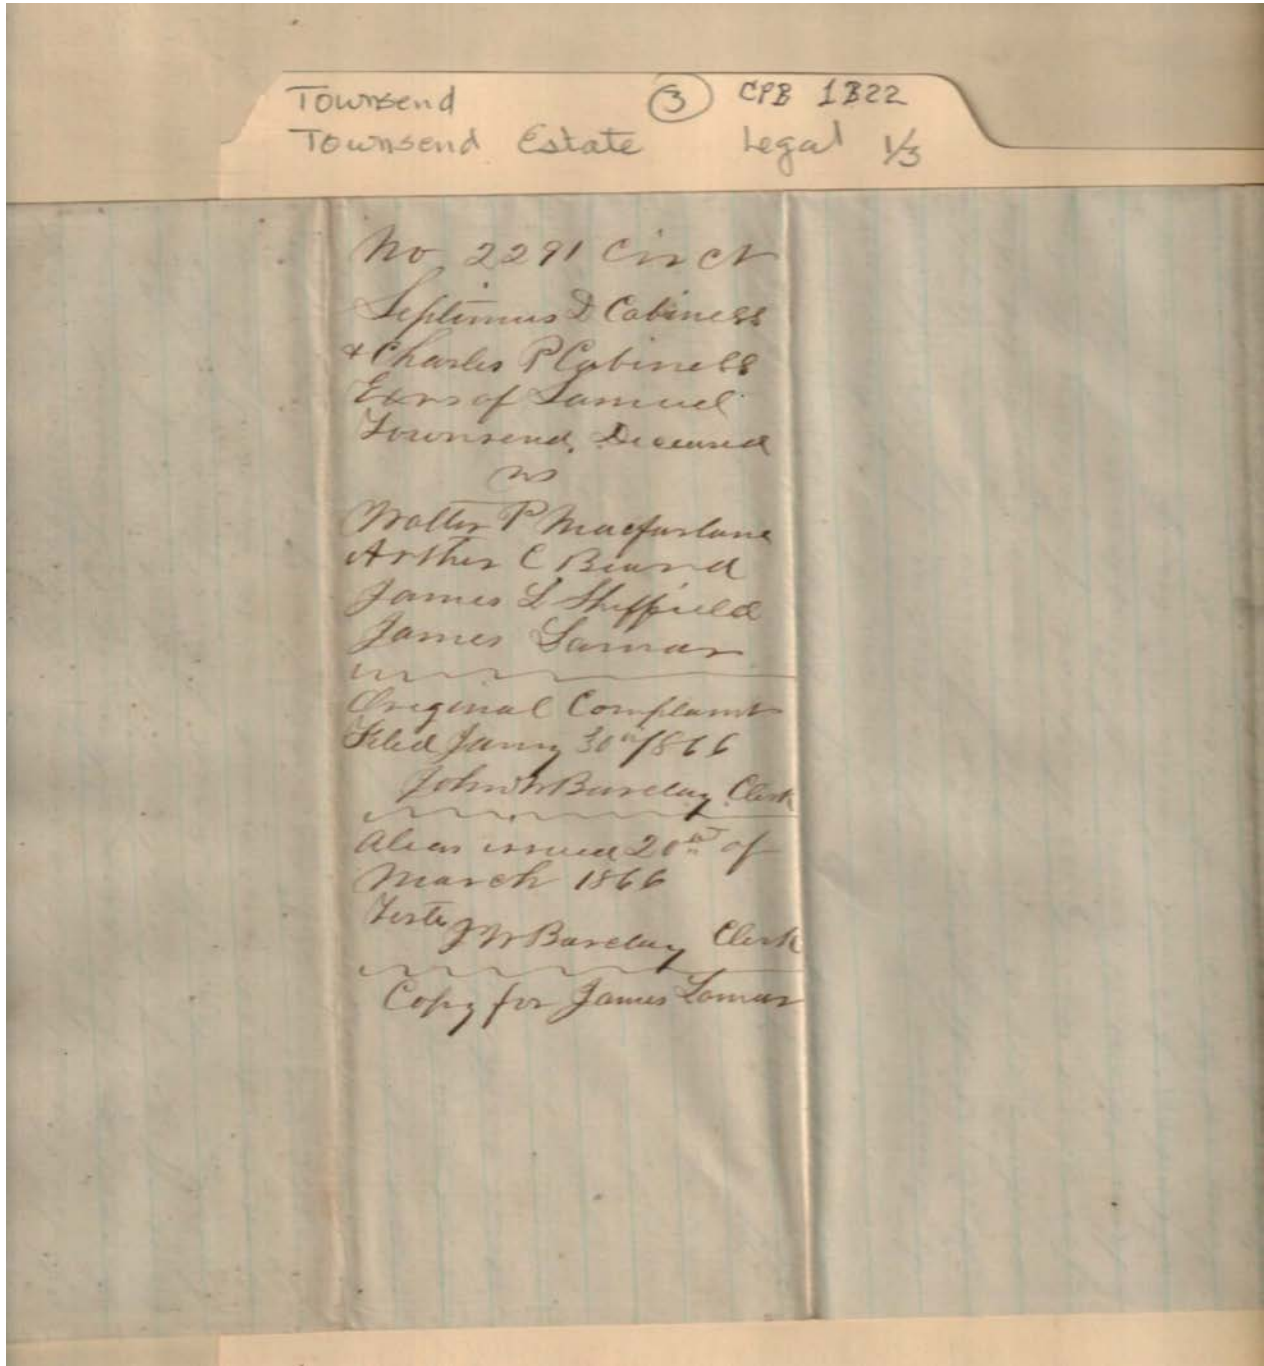 Townsend ③ CPB 1B22
Townsend Estate Legal 1/3
No 2291 Circt
Septimus D Cabiness
& Charles P Cabiness
Exrs of Samuel
Townsend, Deceased
vs
Walter P Macfarlane
Arthur C Beard
James L Sheffield
James Lamar
Original Complaint
Filed Jany 30th/866
John W Barclay Clerk
Alias issued 20th of
March 1866
Teste J W Barclay Clerk
Copy for James Lamar